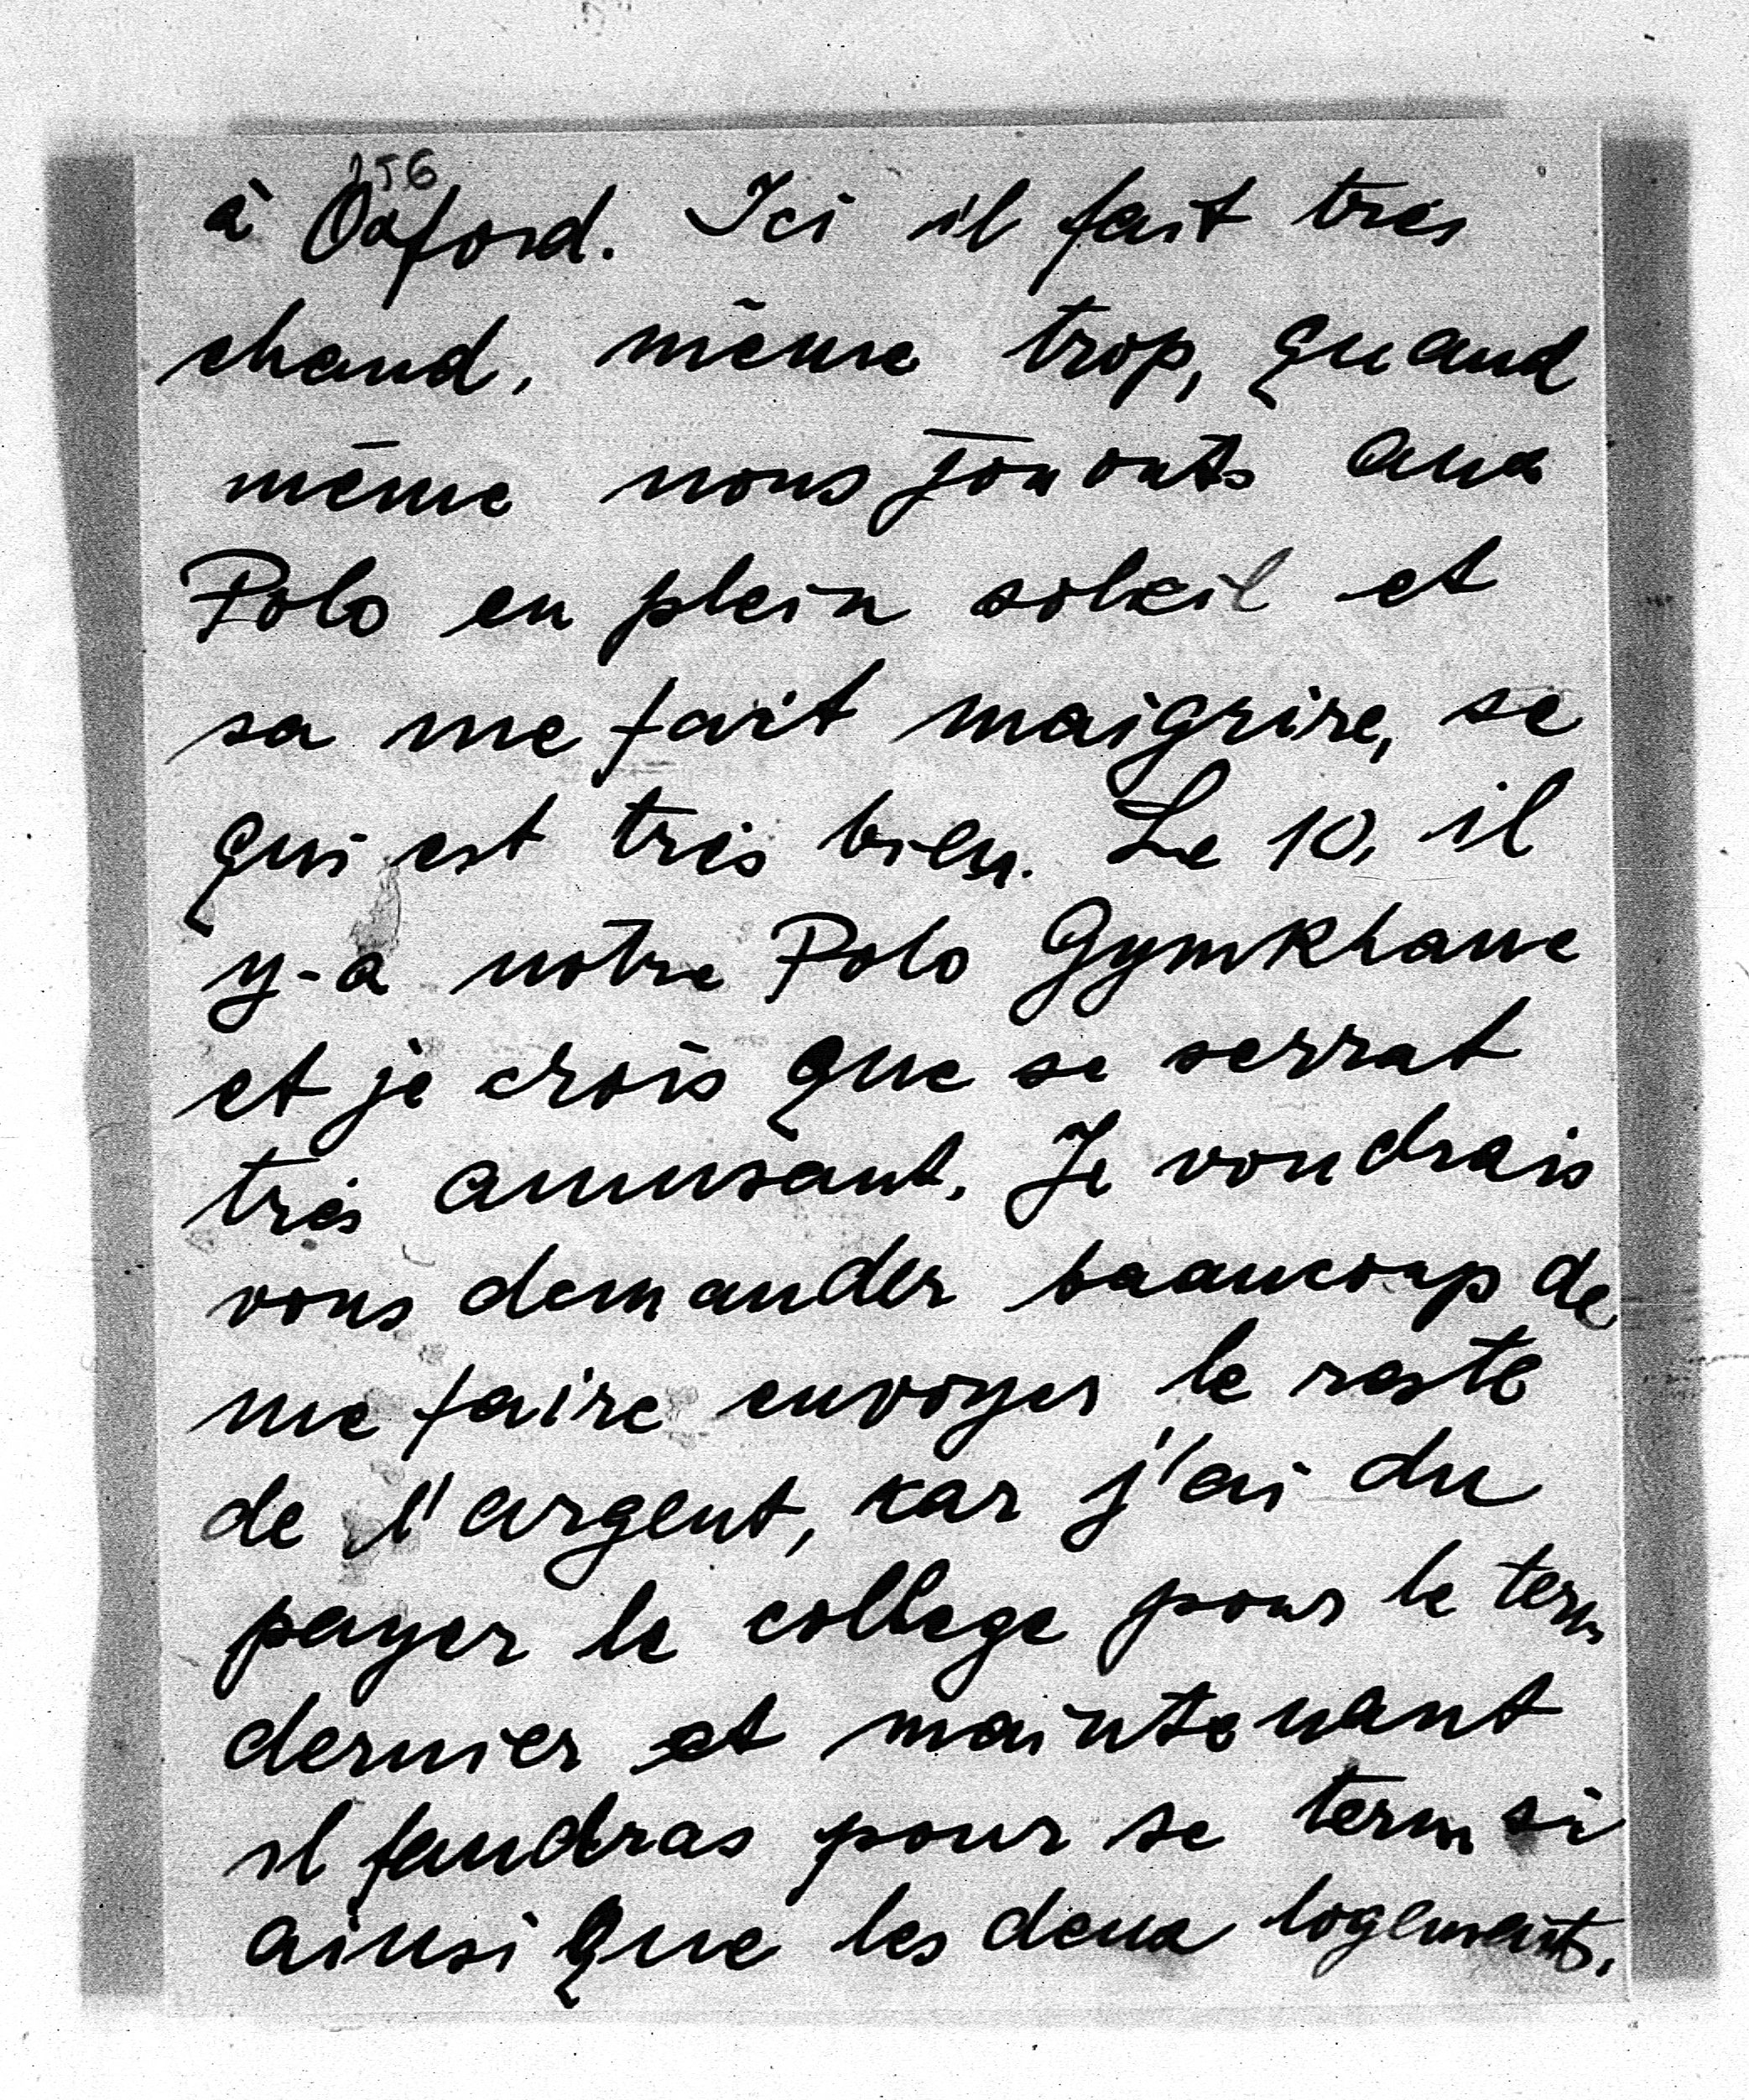 256
à Oxford. Ici il fait très
chaud, même trop, quand
même nous jouonts aux
Polo en plein soleil et
sa me fait maigrire, se
qui est très bien. Le 10, il
y-a notre Polo Gymkhane
et je crois que se serrat
très amusant. Je voudrais
vous demander baaucoup de
me faire envoyer le reste
de l'argent, kar j'ai du
payer le collège pour le term
dernier et maintenant
il faudras pour se term si
ainsi que les deux logements.